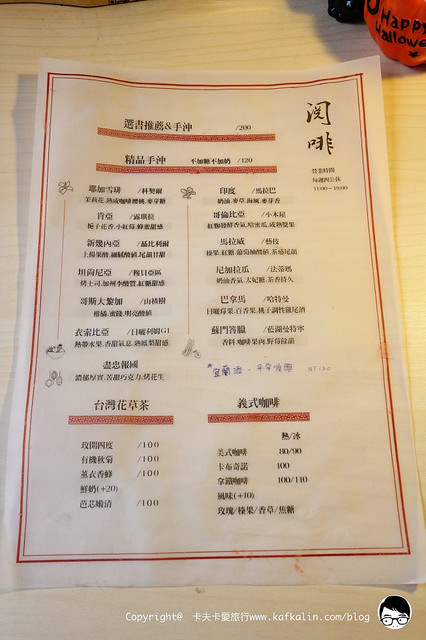 Happy
Hallowe
閱啡
營業時間
每週四公休
11:00~19:00
選書推薦&手沖 /200
精品手沖 不加糖不加奶 /120
耶加雪啡 /科契爾
茉莉花.熟成咖啡櫻桃.麥芽糖
肯亞 /露琪拉
梔子花香.小紅莓.蜂蜜甜感
新幾內亞 /基比利爾
上揚果酸.細膩酸值.尾韻甘甜
坦尚尼亞 /穆貝亞區
烤土司.加州李酸質.紅糖甜感
哥斯大黎加 /山楂樹
柑橘.蜜餞.明亮酸值
衣索比亞 /日曬利姆G1
熱帶水果.香甜氣息.熱鳳梨甜感
盡忠報國
濃郁厚實.苦甜巧克力.烤花生
印度 /馬拉巴
奶油.麥草.海風.麥芽香
哥倫比亞 /小木屋
紅麴發酵香氣.暗蜜瓜.成熟漿果
馬拉威 /藝伎
榛果.紅糖.葡萄柚酸值.茶感尾韻
尼加拉瓜 /法蒂瑪
奶油香氣.太妃糖.茶香持久
巴拿馬 /哈特曼
日曬莓果.百香果.桃子調性雞尾酒
蘇門答臘 /藍湖曼特寧
香料.咖啡果肉.野莓餘韻
NT150
台灣花草茶
玫開四度 /100
有機秋菊 /100
薰衣香蜂 /100
鮮奶(+20)
芭芯嫩清 /100
義式咖啡
熱/冰
美式咖啡 80/90
卡布奇諾 100
拿鐵咖啡 100/110
風味(+10)
玫瑰/榛果/香草/焦糖
Copyright@ 卡夫卡愛旅行www.kafkalin.com/blog